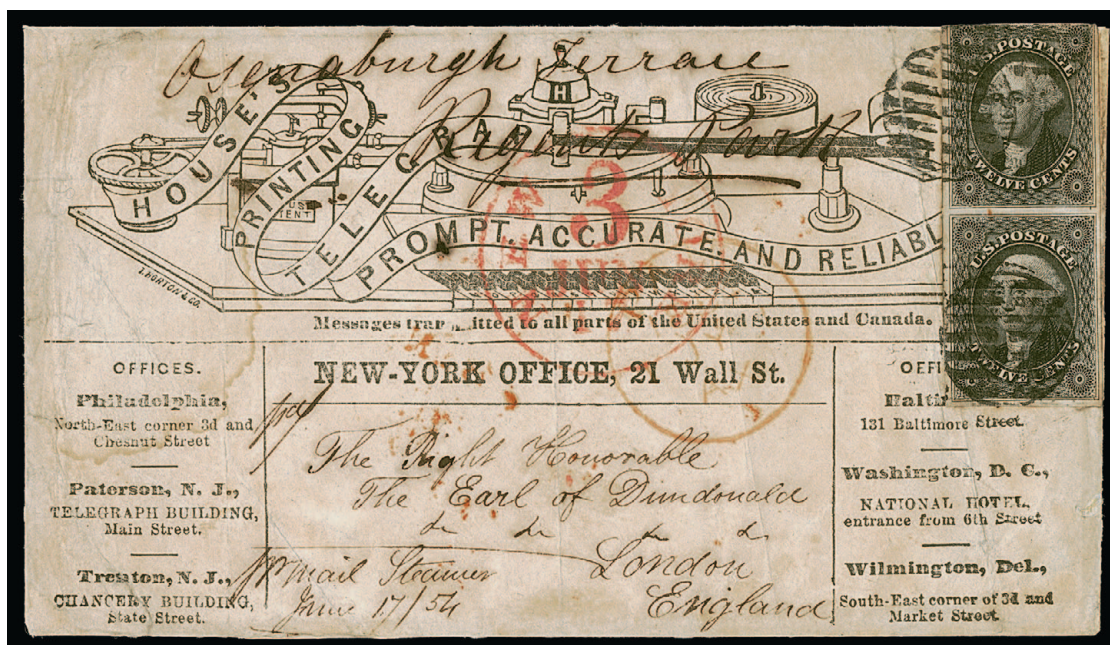 Osnaburgh Terrace
Regents Park
HOUSE'S
PRINTING
TELEGRAPH
PROMPT, ACCURATE, AND RELIABL
H
L. HORTON & CO.
NEW
3
U.S. POSTAGE
TWELVE CENTS
U.S. POSTAGE
TWELVE CENTS
Messages transmitted to all parts of the United States and Canada.
NEW-YORK OFFICE, 21 Wall St.
OFFICES.
Philadelphia,
North-East corner 3d and
Chesnut Street
Paterson, N. J.,
TELEGRAPH BUILDING,
Main Street.
Trenton, N. J.,
CHANCERY BUILDING,
State Street.
The Right Honorable
The Earl of Dundonald
London
England
pr Mail Steamer
June 17/54
OFFI
Baltim
131 Baltimore Street.
Washington, D. C.,
NATIONAL HOTEL,
entrance from 6th Street
Wilmington, Del.,
South-East corner of 3d and
Market Street.